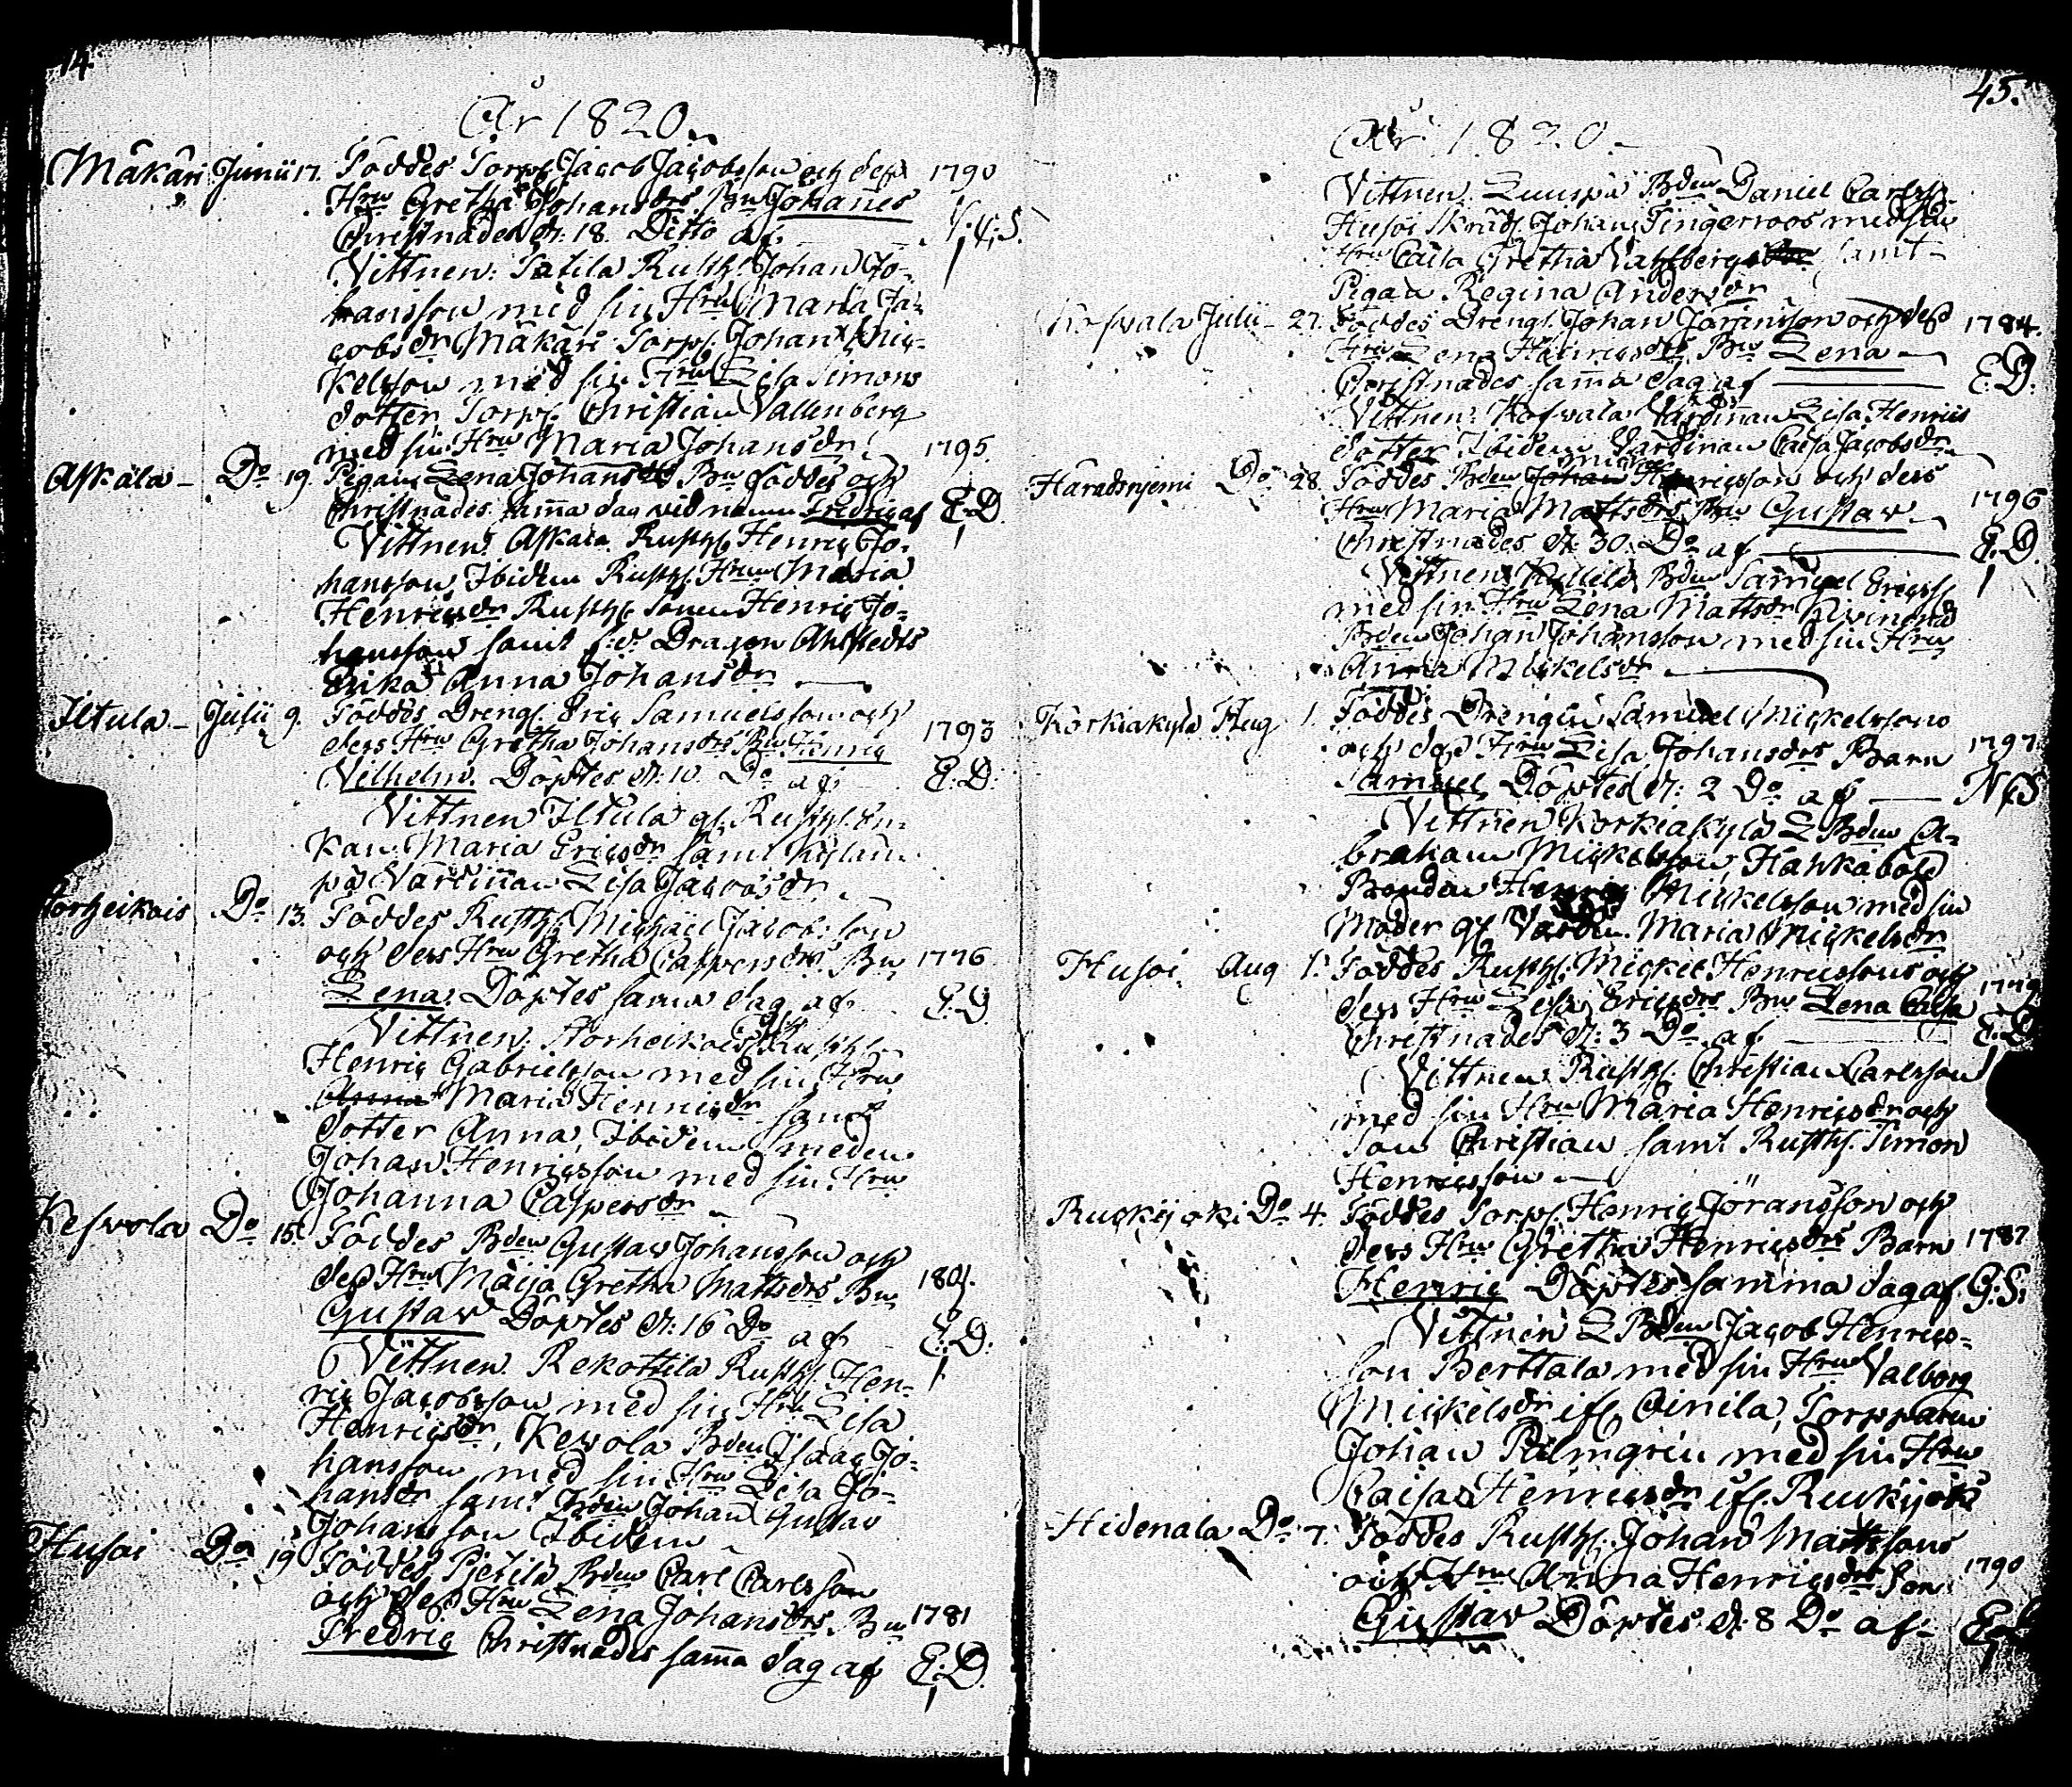 14.
År 1820.
Mäkäri Junii 17. Föddes Torp. Jacob Jacobsson och dess 1790
Hru Gretha Johansdrs Bn Johanes
Christnades d. 18. Ditto af
Vittnen: Tatila Rusth. Johan Jo-
hansson med sin Hru Maria Ja-
cobsdr Mäkäri Torp. Johan Mic-
kelsson med sin Hru Lisa Simons
dotter, Torp. Christian Vallenberg
med sin Hru Maria Johansdr. 1795
Askala - Do 19. Pigan Lena Johansdrs Bn föddes och
Christnades samma dag vid namn Fredric af E.D.
Vittnen: Askala Rusth. Henric Jo-
hansson, Ibidem Rusth. Hrun Maria
Henricsdr Rusth. Sonen Henric Jo-
hansson samt Dragon
Enka Anna Johansdr
Iltula - Julii 9. Föddes Dreng. Eric Samuelsson och
dess Hru Gretha Johansdrs Bn Henric 1793
Vilhelm. Döptes d. 10. Do af E.D.
Vittnen Iltula gl. Rusth. En-
kan Maria Ericsdr samt
pä Värdinnan Lisa Jacobsdr.
Do 13. Föddes Rusth. Michael Jacobsson
och dess Hru Gretha Caspersdrs Bn 1776
Lena. Döptes samma dag af E.D.
Vittnen: Rusth.
Henric Gabrielsson med sin Hru
Maria Henricsdr samt
dotter Anna, Ibidem Smeden
Johan Henricsson med sin Hru
Johanna Caspersdr
Keswola Do 15. Föddes Bden Gustav Johansson och
dess Hru Maija Gretha Mattsdrs Bn 1801.
Gustav Döptes d. 16 Do af E.D.
Vittnen. Rekottila Rusth. Hen-
ric Jacobsson med sin Hru Lisa
Henricsdr, Keswola Bden Isaac Jo-
hansson med sin Hru Lisa Jo-
hansdr samt Bden Johan Gustav
Johansson Ibidem
Husoi Do 19 Föddes Pietilä Bden Carl Carlsson
och dess Hru Lena Johansdrs Bn 1781
Fredric Christnades samma dag af E.D.
45.
År 1820.
Vittnen. Bden Daniel Carlss.
Husoi Skräd. Johan Tingerroos med sin
Hru Caisa Gretha samt
Pigan Regina Andersdr
Kofwala Julii - 27. Föddes Dreng. Johan Jöransson och dess 1784.
Hru Lena Henricsdrs Bn Lena
Christnades samma dag af E.D.
Vittnen: Kofwala Värdinnan Lisa Henrics
dotter Ibidem Värdinnan Caisa Jacobsdr
Do 28. Föddes Bden Henricsson och dess
Hru Maria Mattsdrs Bn Gustav 1796
Christnades d. 30. Do af E.D.
Vittnen Bden Samuel Ericss.
med sin Hru Lena Mattsdr
Bden Johan Johansson med sin Hru
Anna Mickelsdr
Körkiäkylä Aug 1. Föddes Drengen Samuel Mickelssons
och dess Hru Lisa Johansdrs Barn 1797.
Samuel Döptes d. 2 Do af
Vittnen Körkiäkylä L Bden A-
braham Mickelsson, Hankaböle
Bonden Henric Mickelsson med sin
Moder gl. Värdin. Maria Mickelsdr
Husoi Aug 1. Föddes Rusth. Mickel Henricssons och
dess Hru Lisa Ericsdrs Bn Lena Caisa 1779
Christnades d. 3 Do af E.D.
Vittnen Rusth. Christian Carlsson
med sin Hru Maria Henricsdr och
Son Christian samt Rusth. Simon
Henricsson
Ruckijoki Do 4. Föddes Torp. Henric Jöransson och
dess Hru Gretha Henricsdrs Barn 1787
Henric Döptes samma dag af G.S.
Vittnen L Bden Jacob Henrics-
son Berttala med sin Hru Valborg
Mickelsdr ifr. Oinila, Torpparen
Johan Palmgrin med sin Hru
Caisa Henricsdr ifr. Ruckijoki
Hidenala Do 7. Föddes Rusth. Johan Mattssons
och Hru Anna Henricsdrs Son 1790
Gustav Döptes d. 8 Do af